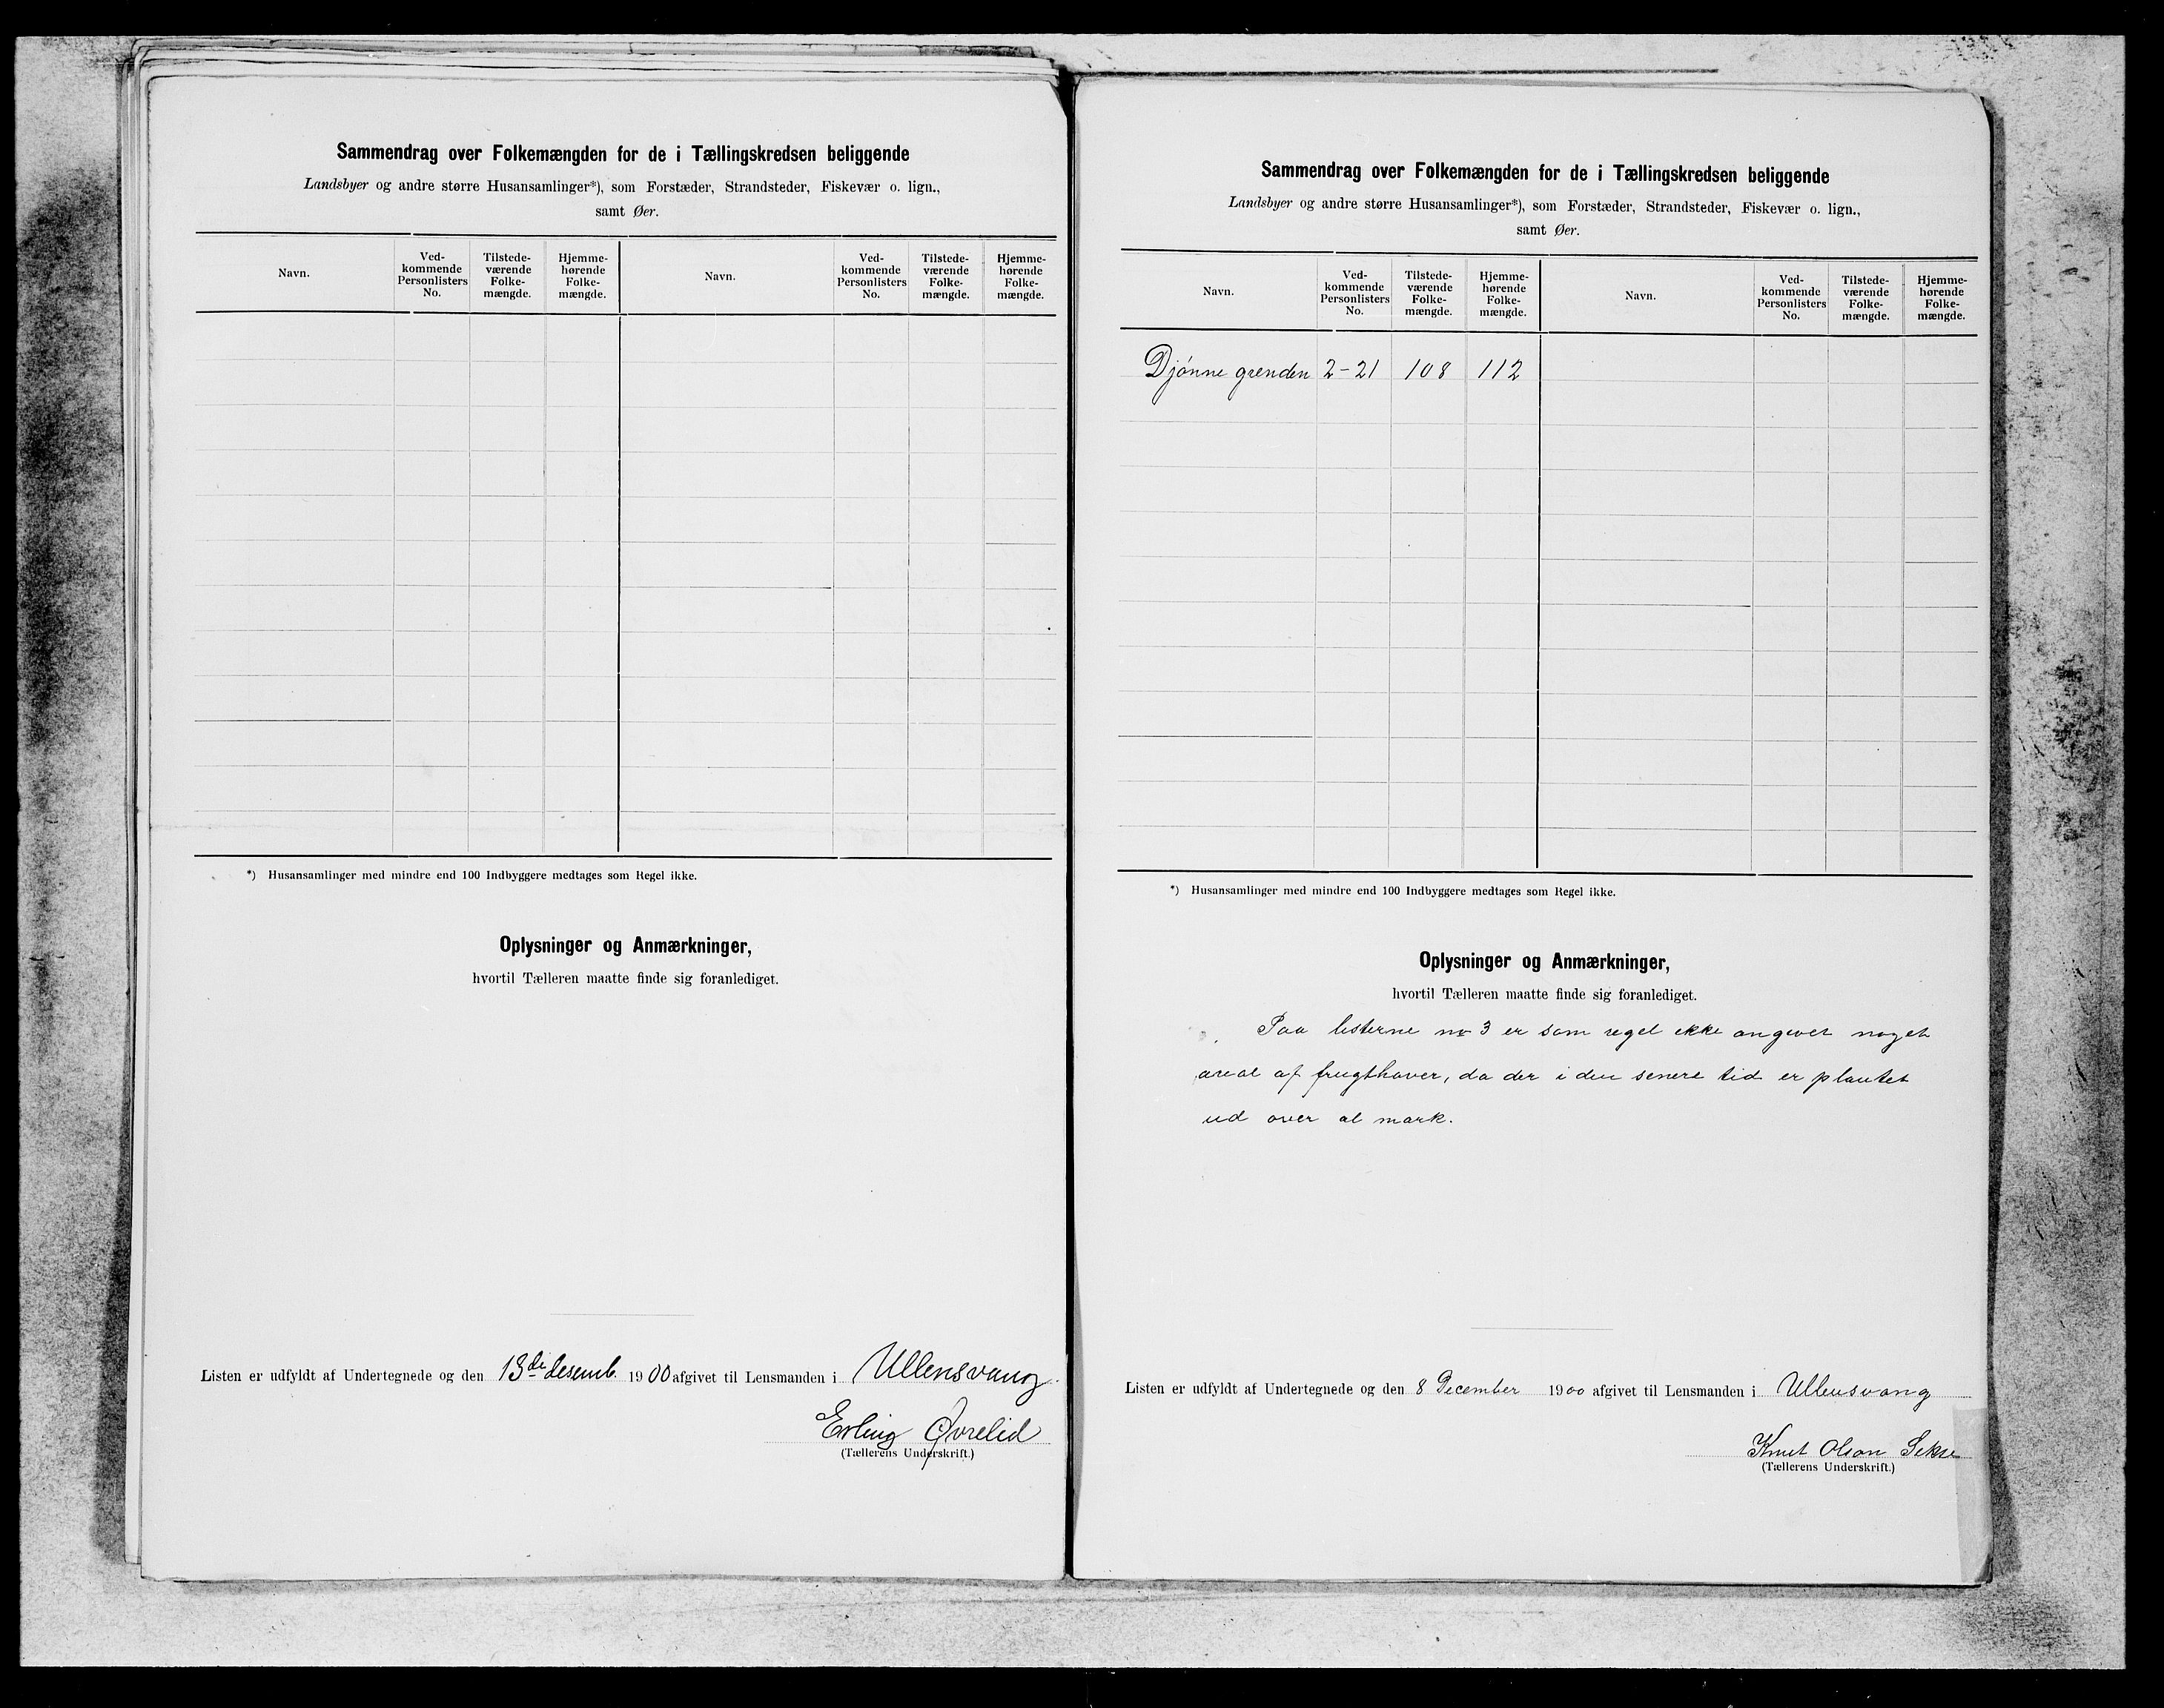 Sammendrag over Folkemængden for de i Tællingskredsen beliggende
Landsbyer og andre større Husansamlinger*), som Forstæder, Strandsteder, Fiskevær o. lign.,
samt Øer.
Navn.
Ved-
kommende
Personlisters
No.
Tilstede-
værende
Folke-
mængde.
Hjemme-
hørende
Folke-
mængde.
Navn.
Ved-
kommende
Personlisters
No.
Tilstede-
værende
Folke-
mængde.
Hjemme-
hørende
Folke-
mængde.
*) Husansamlinger med mindre end 100 Indbyggere medtages som Regel ikke.
Oplysninger og Anmærkninger,
hvortil Tælleren maatte finde sig foranlediget.
Listen er udfyldt af Undertegnede og den 13de desemb. 1900 afgivet til Lensmanden i Ullensvang.
Erling Øvrelid
(Tællerens Underskrift.)
Sammendrag over Folkemængden for de i Tællingskredsen beliggende
Landsbyer og andre større Husansamlinger*), som Forstæder, Strandsteder, Fiskevær o. lign.,
samt Øer.
Navn.
Ved-
kommende
Personlisters
No.
Tilstede-
værende
Folke-
mængde.
Hjemme-
hørende
Folke-
mængde.
Navn.
Ved-
kommende
Personlisters
No.
Tilstede-
værende
Folke-
mængde.
Hjemme-
hørende
Folke-
mængde.
Djønne grenden 2-21 108 112
*) Husansamlinger med mindre end 100 Indbyggere medtages som Regel ikke.
Oplysninger og Anmærkninger,
hvortil Tælleren maatte finde sig foranlediget.
Paa listerne nr 3 er som regel ikke angivet noget
areal af frugthaver, da der i den senere tid er plantet
ud over al mark.
Listen er udfyldt af Undertegnede og den 8 December 1900 afgivet til Lensmanden i Ullensvang
Knut Olson Sekse
(Tællerens Underskrift.)